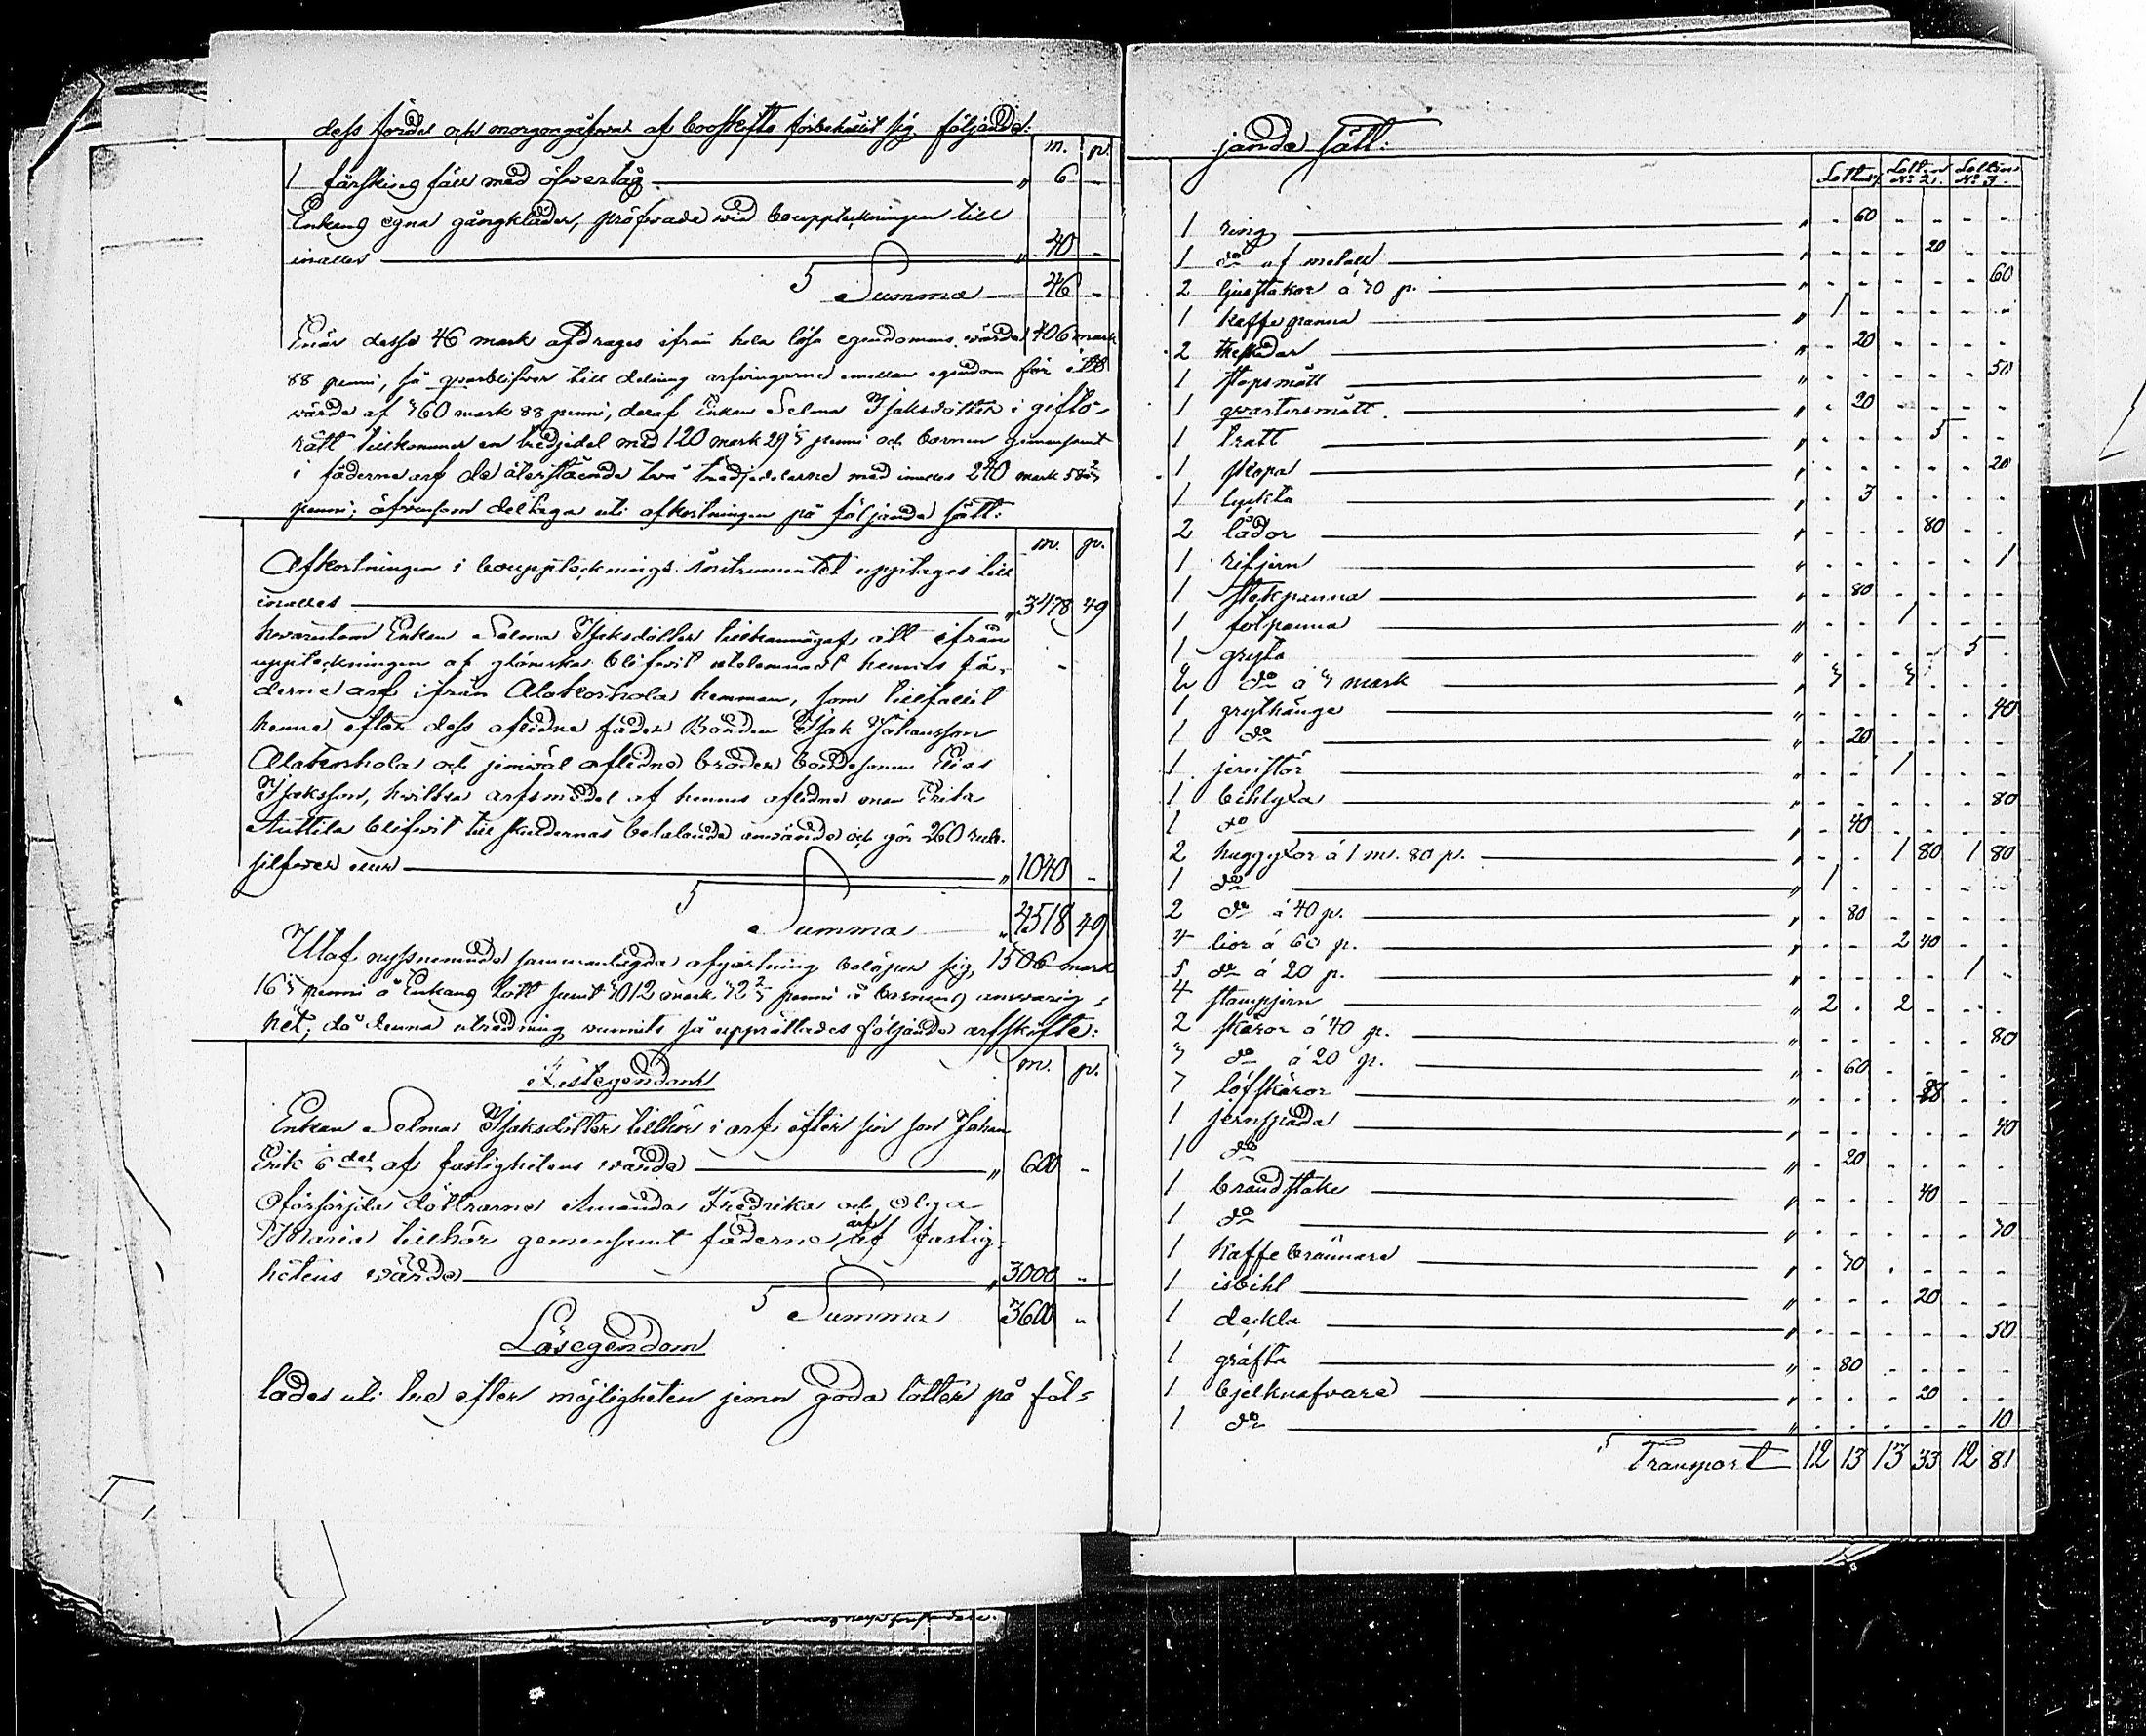 dess fördel och morgongåfwa af booskifto förbehållit sig följande:
m. p.
1 fårskins fäll med öfwertag " 6 -
Enkans egna gångkläder, pröfwade wid bouppteckningen till
inalles " 40 -
Summa 46 -
Enär dessa 46 mark afdrages ifrån hela lösa egendomens wärde 406 mark
88 penni, så qwarblifwer till delning arfwingarne emellan egendom för ett
wärde af 360 mark 88 penni, deraf Enkan Selma Isaksdotter i gifto-
rätt tillkommer en tredjedel med 120 mark 29 1/3 penni och barnen gemensamt
i fäderne arf de återstående twå tredjedelarne med inalles 240 mark 58 2/3
penni; äfwensom deltaga uti afkortningen på följande sätt:
m. p.
Afkortningen i bouppteknings instrumentet upptages till
inalles " 3478 49
hwarutom Enkan Selma Isaksdotter tillkännagaf att ifrån
uppteckningen af glömska blifwit utelemnadt hennes fä-
derne arf ifrån Alakoskola hemman, som tillfallit
henne efter dess aflidne fader Bonden Isak Johansson
Alakoskola och jemwäl aflidne broder bondesonen Elias
Isaksson, hwilka arfsmedel af hennes aflidne man Erik
Anttila blifwit till skuldernas betalande använde och gör 260 rub.
silfwer eller " 1040 -
Summa " 4518 49
Utaf nyssnemnde sammanlagda afgörtning belöper sig 1506 mark
16 1/3 penni å Enkans lott samt 3012 mark 32 2/3 penni å barnens answarig-
het; då denna utredning wunnits så upprättades följande arfskifte:
m. p.
Fastegendom
Enkan Selma Isaksdotter tillhör i arf efter sin son Johan
Erik 6 del af fastighetens wärde " 600 -
Oförsörjda döttrarne Amanda Fredrika och Olga
Maria tillhör gemensamt fäderne arf af fastig-
hetens wärde " 3000 "
Summa 3600 "
Lösegendom
lades uti tre efter möjligheten jemn goda lotter på föl-
jande sätt:
Lotten Lotten No 2. Lotten No 3.
1 ring " - 60 - - - -
1 do af metall " - - - 20 - -
2 ljusstakar á 30 p. " - - - - - 60
1 kaffe panna " 1 - - - - -
2 theskedar " - 20 - - - -
1 stopsmått " - - - - - 50
1 qwartersmått " - 20 - - - -
1 tratt " - - - 5 - -
1 skopa " - - - - - 20
1 lyckta " - 3 - - - -
2 lådor " - - - 80 - -
1 rifjern " - - - - - 1
1 stekpanna " - 80 - - - -
1 fotpanna " - - 1 - - -
1 gryta " - - - - 5 -
2 do á 3 mark " 3 - 3 - - -
1 grythänge " - - - - - 40
1 do " - 20 - - - -
1 jernstör " - - 1 - - -
1 bihlyxa " - - - - - 80
1 do " - 40 - - - -
2 huggyxor á 1 m. 80 p. " - - 1 80 1 80
1 do " 1 - - - - -
2 do á 40 p. " - 80 - - - -
4 lior á 60 p. " - - 2 40 - -
5 do á 20 p. " - - - - 1 -
4 stampjern " 2 - 2 - - -
2 skäror á 40 p. " - - - - - 80
3 do á 20 p. " - 60 - - - -
7 löfskäror " - - - 28 - -
1 jernspada " - - - - - 40
1 do " - 20 - - - -
1 brandstake " - - - 40 - -
1 do " - - - - - 30
1 kaffe brännare " - 30 - - - -
1 isbihl " - - - 20 - -
1 deckla " - - - - - 50
1 gräfta " - 80 - - - -
1 bjelknafware " - - - 20 - -
1 do " - - - - - 10
Transport 12 13 13 33 12 81